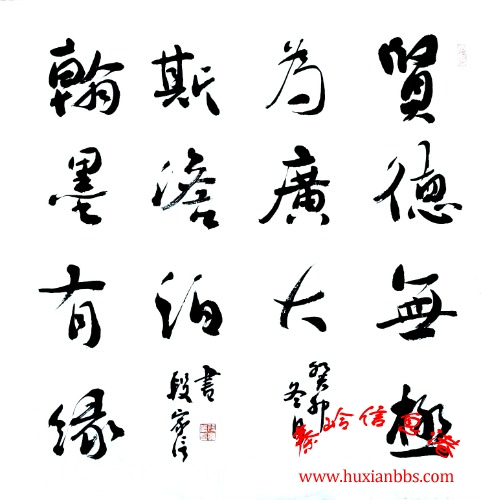 賢德無極
為廣大
癸卯
冬
斯澹泊
書
段家信
翰墨有緣
秦岭信息港
www.huxianbbs.com